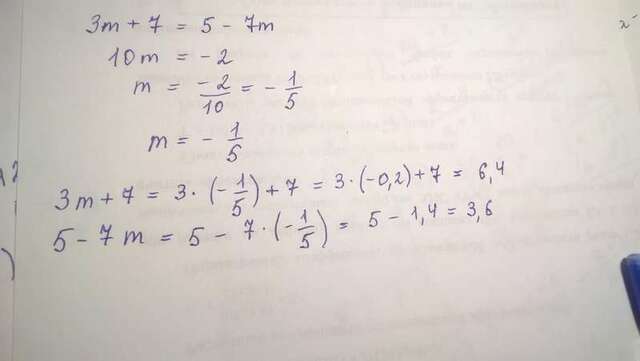 3m + 7 = 5 - 7m
10m = -2
m = -2/10 = - 1/5
m = - 1/5
3m + 7 = 3 · (- 1/5) + 7 = 3 · (-0,2) + 7 = 6,4
5 - 7m = 5 - 7 · (- 1/5) = 5 - 1,4 = 3,6